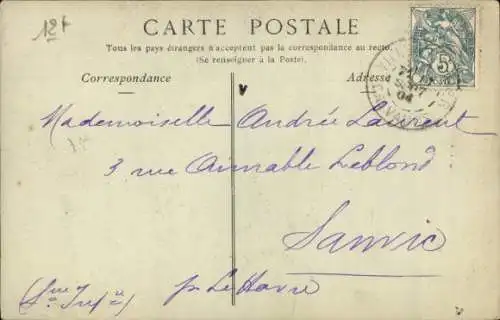 12f
CARTE POSTALE
Tous les pays étrangers n'acceptent pas la correspondance au recto.
(Se renseigner à la Poste).
Correspondance
Adresse
5
04
Mademoiselle Andrée Laurent
3 rue Aimable Leblond
Sanvic
(Sne Infre) pr Le Havre